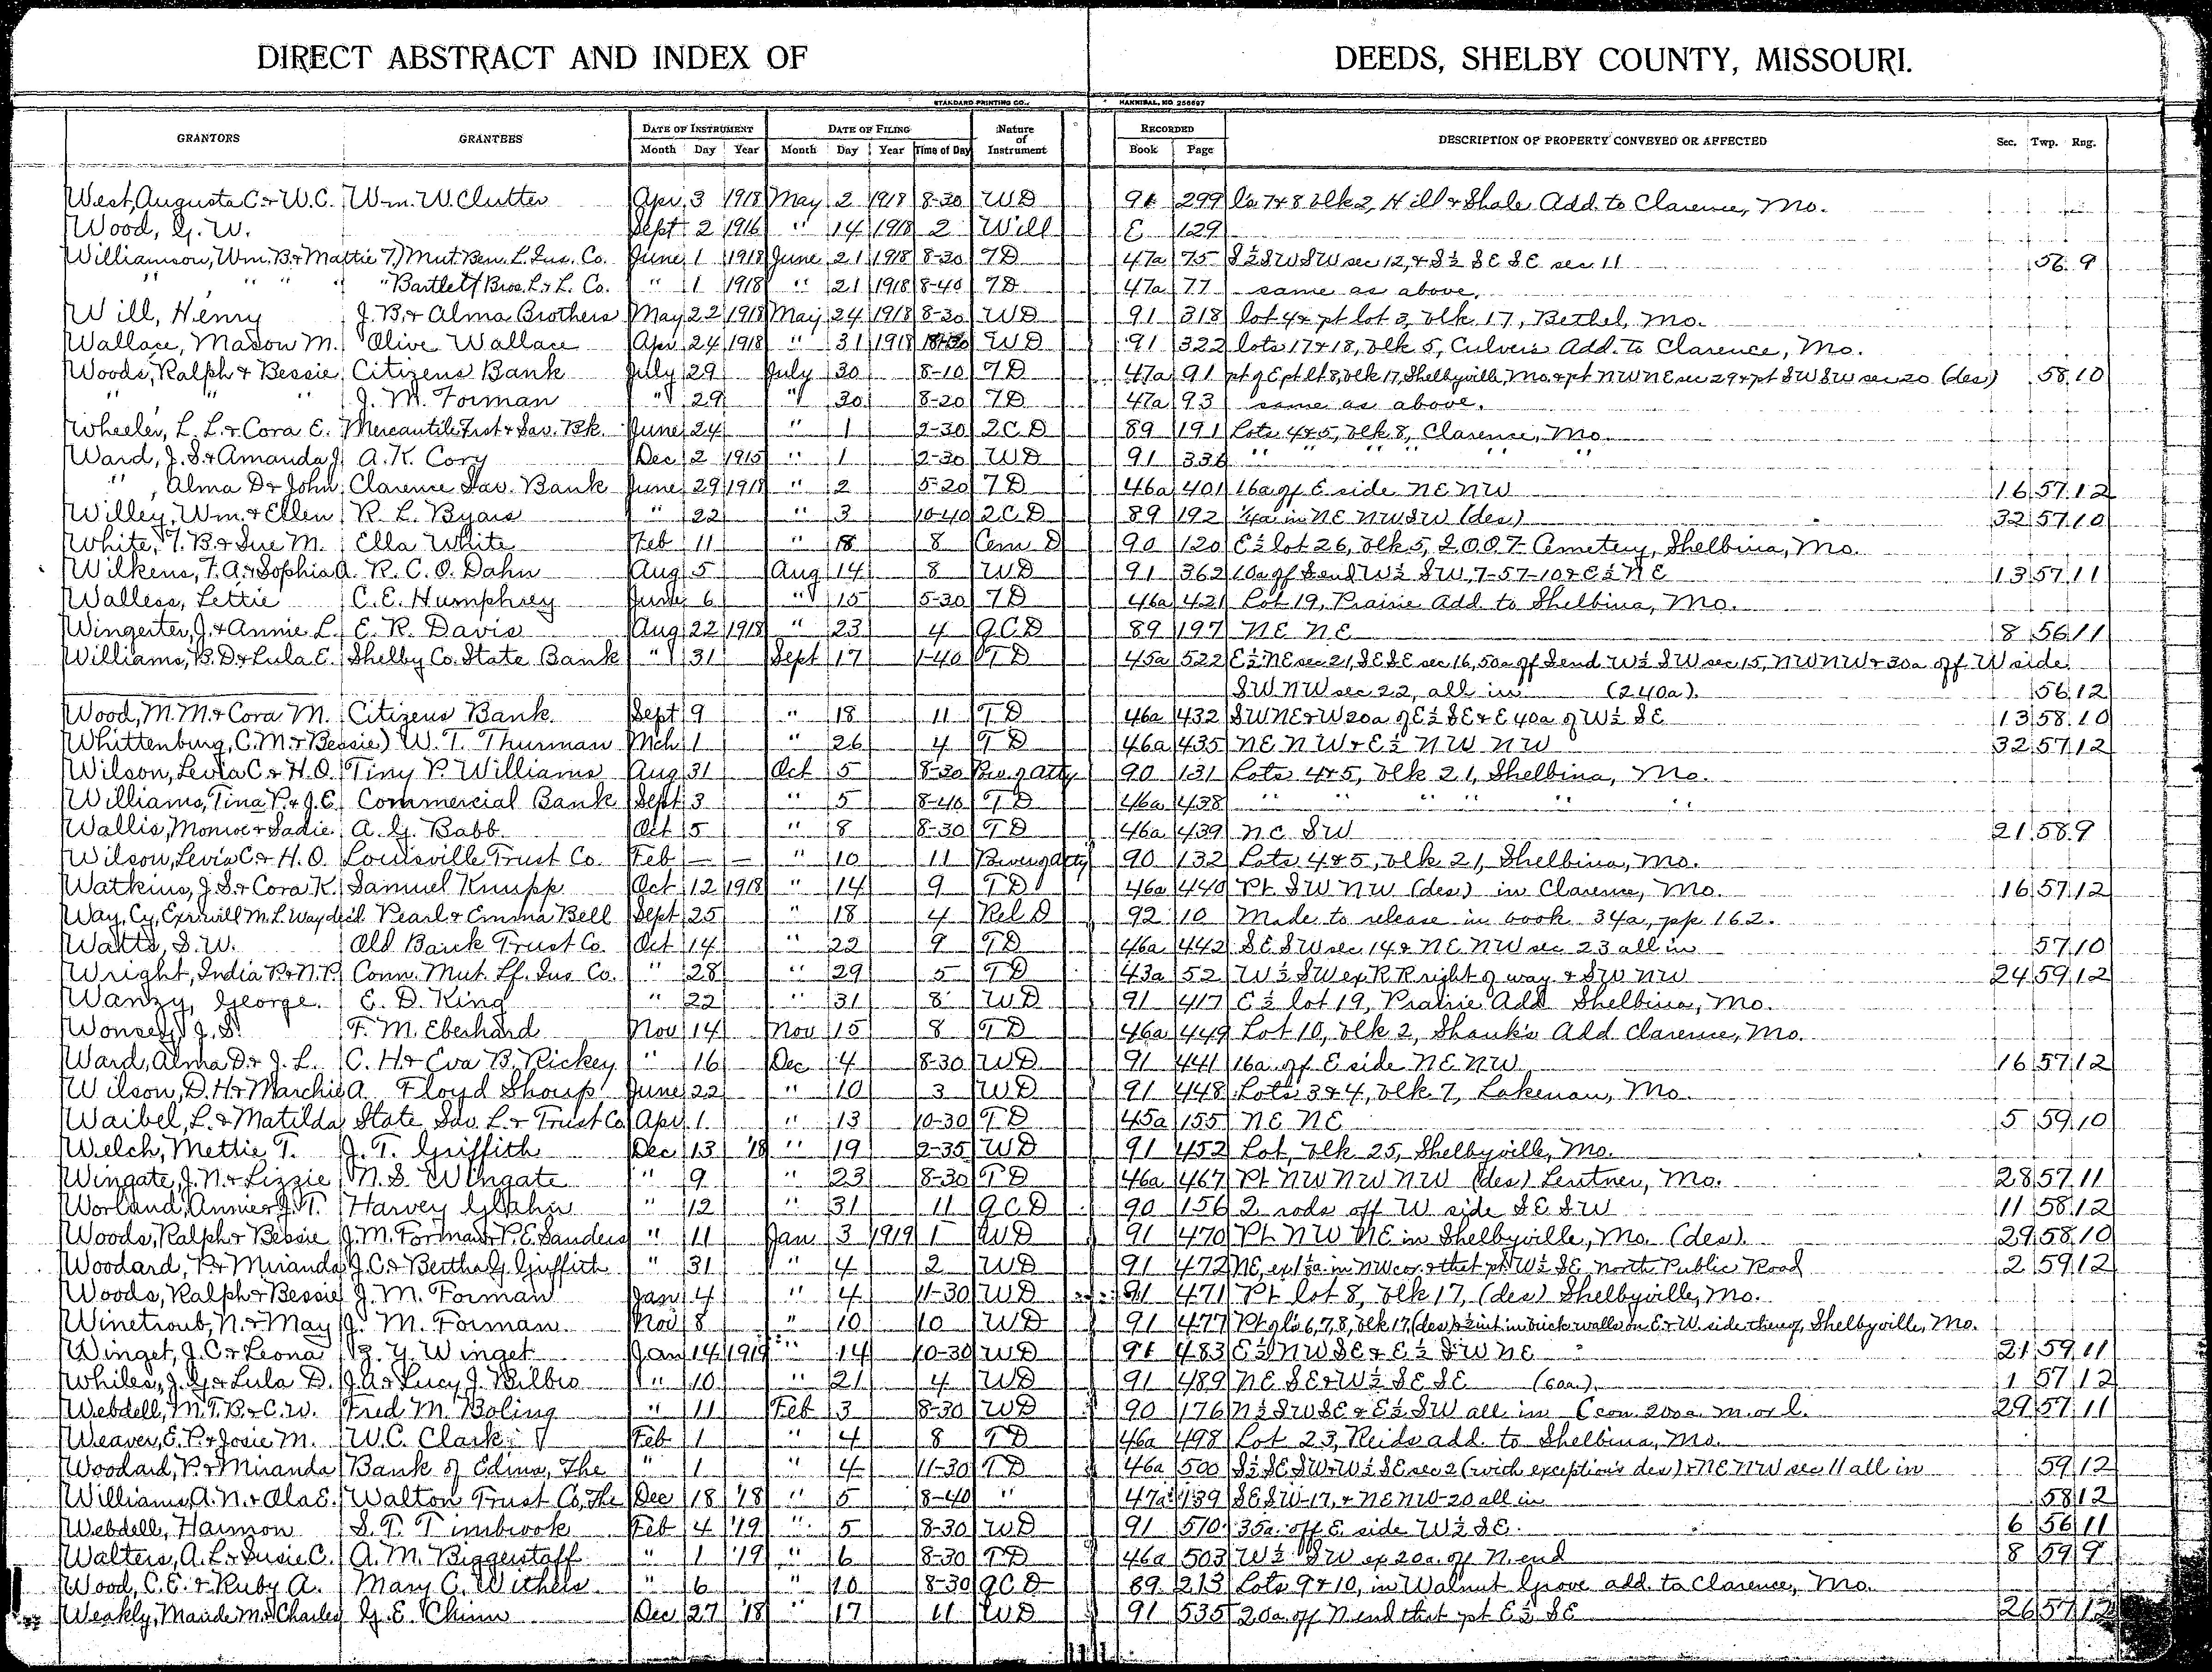 DIRECT ABSTRACT AND INDEX OF DEEDS, SHELBY COUNTY, MISSOURI.
STANDARD PRINTING CO., HANNIBAL, MO. 256697
GRANTORS GRANTEES DATE OF INSTRUMENT DATE OF FILING Nature of Instrument RECORDED DESCRIPTION OF PROPERTY CONVEYED OR AFFECTED Sec. Twp. Rng.
Month Day Year Month Day Year Time of Day Book Page
West, Augusta C. & W.C. Wm. W. Clutter Apr 3 1918 May 2 1918 8-30 WD 91 299 ls 7&8 blk 2, Hill & Shale Add. to Clarence, Mo.
Wood, G. W. Sept 2 1916 " 14 1918 2 Will E 129
Williamson, Wm. B. & Mattie T.) Mut Ben. L. Ins. Co. June 1 1918 June 21 1918 8-30 TD 47a 75 S½SWSW sec 12, & S½ SE SE sec 11 56 9
" " " " " Bartlett Bros. L. & L. Co. " 1 1918 " 21 1918 8-40 TD 47a 77 same as above.
Will, Henry J. B. & Alma Brothers May 22 1918 May 24 1918 8-30 WD 91 318 lot 4 & pt lot 3, blk 17, Bethel, Mo.
Wallace, Mason M. Olive Wallace Apr 24 1918 " 31 1918 8-30 WD 91 322 lots 17&18, blk 5, Culver's Add. to Clarence, Mo.
Woods, Ralph & Bessie Citizens Bank July 29 July 30 8-10 TD 47a 91 pt of E pt lt 8, blk 17, Shelbyville, Mo. & pt NWNE sec 29 & pt SWSW sec 20 (des) 58 10
" " " J. M. Forman " 29 " 30 8-20 TD 47a 93 same as above.
Wheeler, L. L. & Cora E. Mercantile Trst & Sav. Bk. June 24 " 1 2-30 QCD 89 191 Lots 4&5, blk 8, Clarence, Mo.
Ward, J. S. & Amanda J. A. K. Cory Dec 2 1915 " 1 2-30 WD 91 336 " " " " " "
" , Alma D & John Clarence Sav. Bank June 29 1918 " 2 5-20 TD 46a 401 16a of E side NENW 16 57 12
Willey, Wm. & Ellen R. L. Byars " 22 " 3 10-40 QCD 89 192 ¼a in NE NWSW (des) 32 57 10
White, T. B. & Sue M. Ella White Feb 11 " 18 8 Cem D 90 120 E½ lot 26, blk 5, I.O.O.F. Cemetery, Shelbina, Mo.
Wilkens, F. A. & Sophia A. R. C. O. Dahn Aug 5 Aug 14 8 WD 91 362 10a of Send W½ SW, 7-57-10 & E½NE 13 57 11
Walless, Lettie C. E. Humphrey June 6 " 15 5-30 TD 46a 421 Lot 19, Prairie Add. to Shelbina, Mo.
Wingerter, J. & Annie L. E. R. Davis Aug 22 1918 " 23 4 QCD 89 197 NE NE 8 56 11
Williams, B. D. & Lula E. Shelby Co. State Bank " 31 Sept 17 1-40 TD 45a 522 E½NE sec 21, SESE sec 16, 50a of Send W½ SW sec 15, NWNW & 30a off W side
SWNW sec 22, all in (240a). 56 12
Wood, M. M. & Cora M. Citizens Bank Sept 9 " 18 11 TD 46a 432 SWNE & W 20a of E½ SE & E 40a of W½ SE 13 58 10
Whittenburg, C. M. & Bessie) W. T. Thurman Mch 1 " 26 4 TD 46a 435 NE NW & E½ NW NW 32 57 12
Wilson, Levia C. & H. O. Tiny P. Williams Aug 31 Oct 5 8-30 Pow of Atty 90 131 Lots 4&5, blk 21, Shelbina, Mo.
Williams, Tina P. & J. E. Commercial Bank Sept 3 " 5 8-40 TD 46a 438 " " " " " "
Wallis, Monroe & Sadie A. G. Babb Oct 5 " 8 8-30 TD 46a 439 NE SW 21 58 9
Wilson, Levia C. & H. O. Louisville Trust Co. Feb — — " 10 11 Pow of Atty 90 132 Lots 4&5, blk 21, Shelbina, Mo.
Watkins, J. S. & Cora K. Samuel Knupp Oct 12 1918 " 14 9 TD 46a 440 Pt SW NW (des) in Clarence, Mo. 16 57 12
Way, Cy, Exr will M. L. Way dec'd Pearl & Emma Bell Sept 25 " 18 4 Rel D 92 10 Made to release in book 34a, pp 162.
Watts, S. W. Old Bank Trust Co. Oct 14 " 22 9 TD 46a 442 SESW sec 14 & NENW sec 23 all in 57 10
Wright, India P. & N. P. Conn. Mut. Lf. Ins Co. " 28 " 29 5 TD 43a 52 W½SW ex RR right of way & SW NW 24 59 12
Wanzy, George. E. D. King " 22 " 31 8 WD 91 417 E½ lot 19, Prairie Add Shelbina, Mo.
Wonsey, J. S. F. M. Eberhard Nov 14 Nov 15 8 TD 46a 449 Lot 10, blk 2, Shank's Add Clarence, Mo.
Ward, Alma D. & J. L. C. H. & Eva B. Rickey " 16 Dec 4 8-30 WD 91 441 16a off E side NE NW 16 57 12
Wilson, D. H. & Marchie A. Floyd Shoup June 22 " 10 3 WD 91 448 Lots 3&4, blk 7, Lakenan, Mo.
Waibel, L. & Matilda State Sav. L. & Trust Co Apr 1 " 13 10-30 TD 45a 155 NE NE 5 59 10
Welch, Mettie T. J. T. Griffith Dec 13 '18 " 19 2-35 WD 91 452 Lot, blk 25, Shelbyville, Mo.
Wingate, J. N. & Lizzie N. S. Wingate " 9 " 23 8-30 TD 46a 467 Pt NW NW NW (des) Lentner, Mo. 28 57 11
Worland, Annie & J. T. Harvey Glahn " 12 " 31 11 QCD 90 156 2 rods off W side SE SW 11 58 12
Woods, Ralph & Bessie J. M. Forman & P. E. Sanders " 11 Jan 3 1919 1 WD 91 470 Pt NW NE in Shelbyville, Mo. (des). 29 58 10
Woodard, P. & Miranda J. C. & Bertha G. Griffith " 31 " 4 2 WD 91 472 NE, ex 1½a in NW cor. & that pt W½ SE north Public Road 2 59 12
Woods, Ralph & Bessie J. M. Forman Jan 4 " 4 11-30 WD 91 471 Pt lot 8, blk 17, (des) Shelbyville, Mo.
Winetroub, N. & May J. M. Forman Nov 8 " 10 10 WD 91 477 Pt of ls 6,7,8, blk 17, (des) & ½ int in brick walls on E & W. side thereof, Shelbyville, Mo.
Winget, J. C. & Leona Z. Y. Winget Jan 14 1919 " 14 10-30 WD 91 483 E½NWSE & E½ SW NE 21 59 11
Whiles, J. G. & Lula D. J. A. & Lucy J. Bilbro " 10 " 21 4 WD 91 489 NE SE & W½ SE SE (60a.) 1 57 12
Webdell, M. T. B. & C. W. Fred M. Boling " 11 Feb 3 8-30 WD 90 176 N½SWSE & E½ SW all in (con. 200a. m. or l. 29 57 11
Weaver, E. P. & Josie M. W. C. Clark Feb 1 " 4 8 TD 46a 498 Lot 23, Reids add. to Shelbina, Mo.
Woodard, P. & Miranda Bank of Edina, The " 1 " 4 11-30 TD 46a 500 S½SESW & W½SE sec 2 (with exceptions des) & NENW sec 11 all in 59 12
Williams, A. N. & Ola E. Walton Trust Co, The Dec 18 '18 " 5 8-40 " 47a 139 SESW-17, & NENW-20 all in 58 12
Webdell, Harmon S. T. Timbrook Feb 4 '19 " 5 8-30 WD 91 510 35a off E side W½ SE. 6 56 11
Walters, A. L. & Susie C. A. M. Biggerstaff " 1 '19 " 6 8-30 TD 46a 503 W½ SW ex 20a. off N. end 8 59 9
Wood, C. E. & Ruby A. Mary C. Withers " 6 " 10 8-30 QCD 89 213 Lots 9&10, in Walnut Grove add. to Clarence, Mo.
Weakly, Maude M. & Charles G. E. Chinn Dec 27 '18 " 17 11 WD 91 535 20a off N end that pt E½ SE 26 57 12